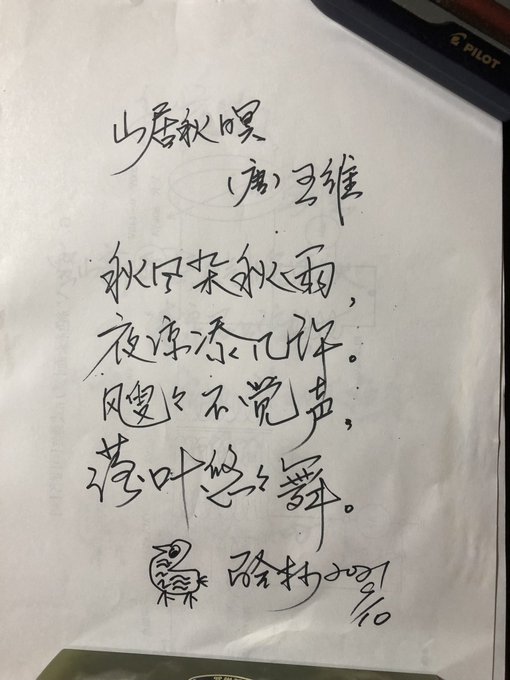 PILOT
山居秋暝
(唐)王维
秋风杂秋雨,
夜凉添几许。
飕々不觉声,
落叶悠々舞。
2021
9/10